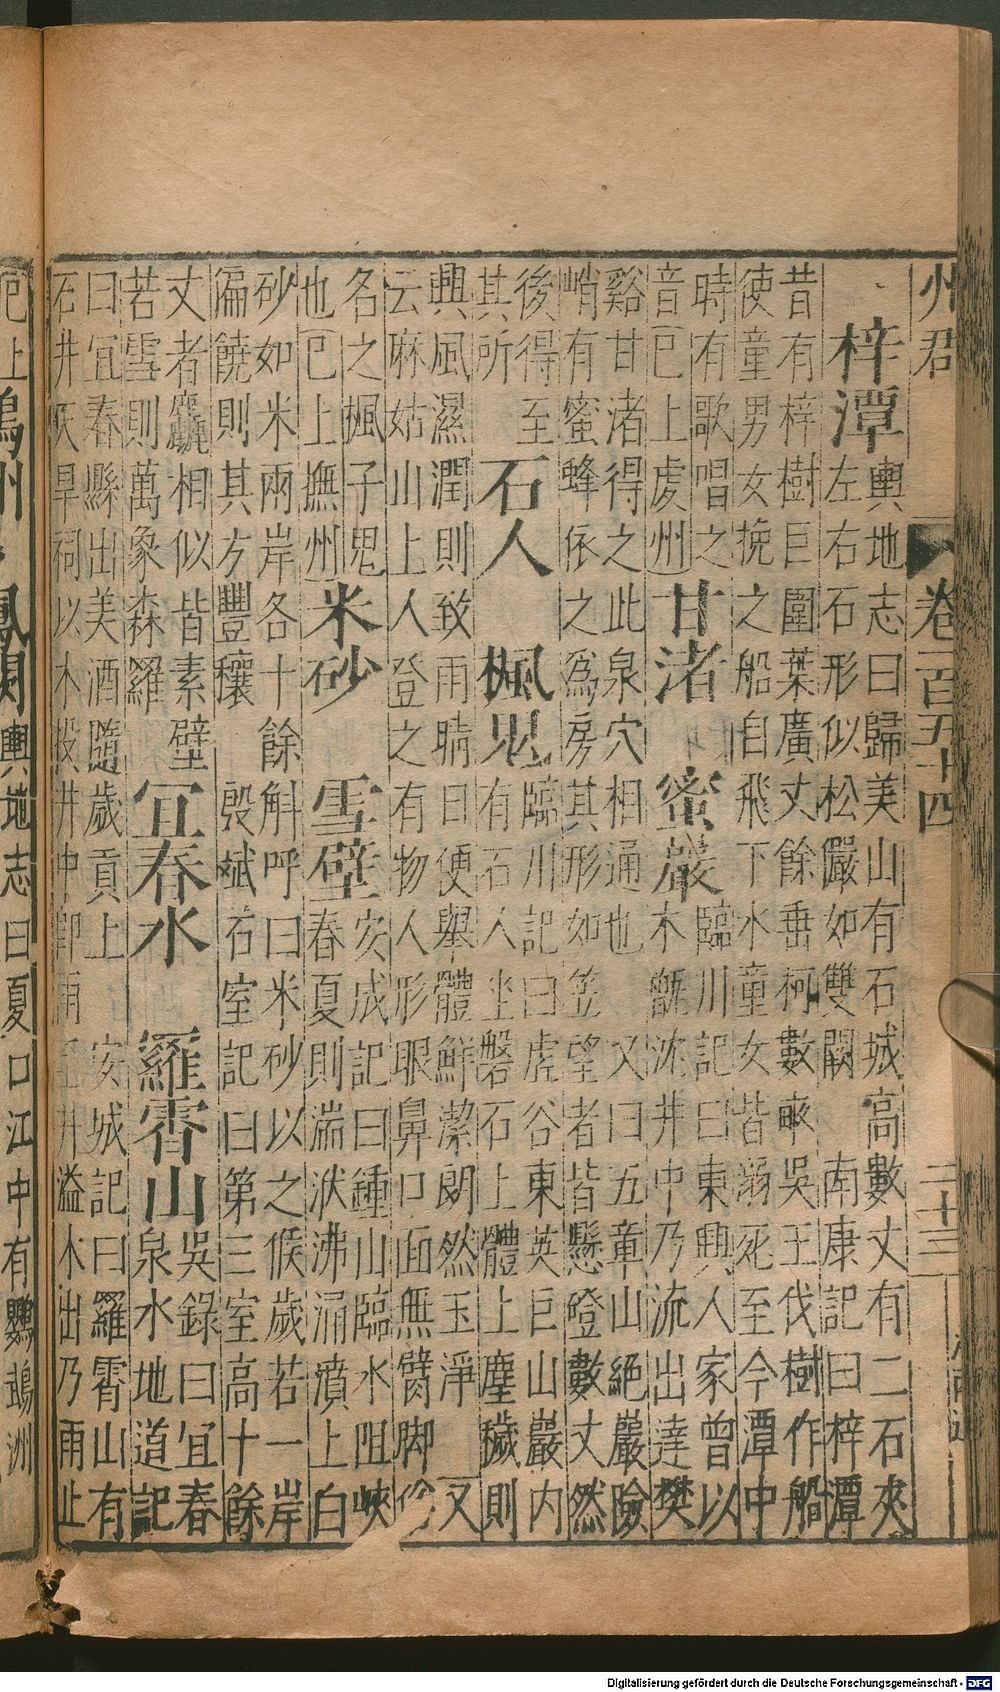 州君 卷一百五十四 二十三
梓潭
輿地志曰歸美山有石城高數丈有二石夾
左右石形似松儼如雙闕 南康記曰梓潭
昔有梓樹巨圍葉廣丈餘垂柯數畝吳王伐樹作船
使童男女挽之船自飛下水童女皆溺死至今潭中
時有歌唱之
音已上處州
甘渚 蜜巖
臨川記曰東興人家曾以
木甑沐井中乃流出達樊
谿甘渚得之此泉穴相通也 又曰五章山絕巖險
峭有蜜蜂依之爲房其形如笠望者皆懸磴數丈然
後得至
其所
石人 楓鬼
臨川記曰虎谷東英巨山巖内
有石人坐磐石上體上塵穢則
興風濕潤則致雨晴日便舉體鮮潔朗然玉淨 又
云麻姑山上人登之有物人形眼鼻口面無臂脚俗
名之楓子鬼
也已上撫州
米砂 雪壁
安成記曰鍾山臨水阻峽
春夏則湍洑沸涌濆上白
砂如米兩岸各十餘斛呼曰米砂以之候歲若一岸
偏饒則其方豐穰 殷斌石室記曰第三室高十餘
丈者麤麗相似皆素壁
若雪則萬象森羅
宜春水 羅霄山
吳錄曰宜春
泉水地道記
曰宜春縣出美酒隨歲貢上 安城記曰羅霄山有
石井天旱祠以木投井中即雨至井溢木出乃雨止
已上 州 鳳闕 輿地志曰夏口江中有鸚鵡洲
Digitalisierung gefördert durch die Deutsche Forschungsgemeinschaft - DFG